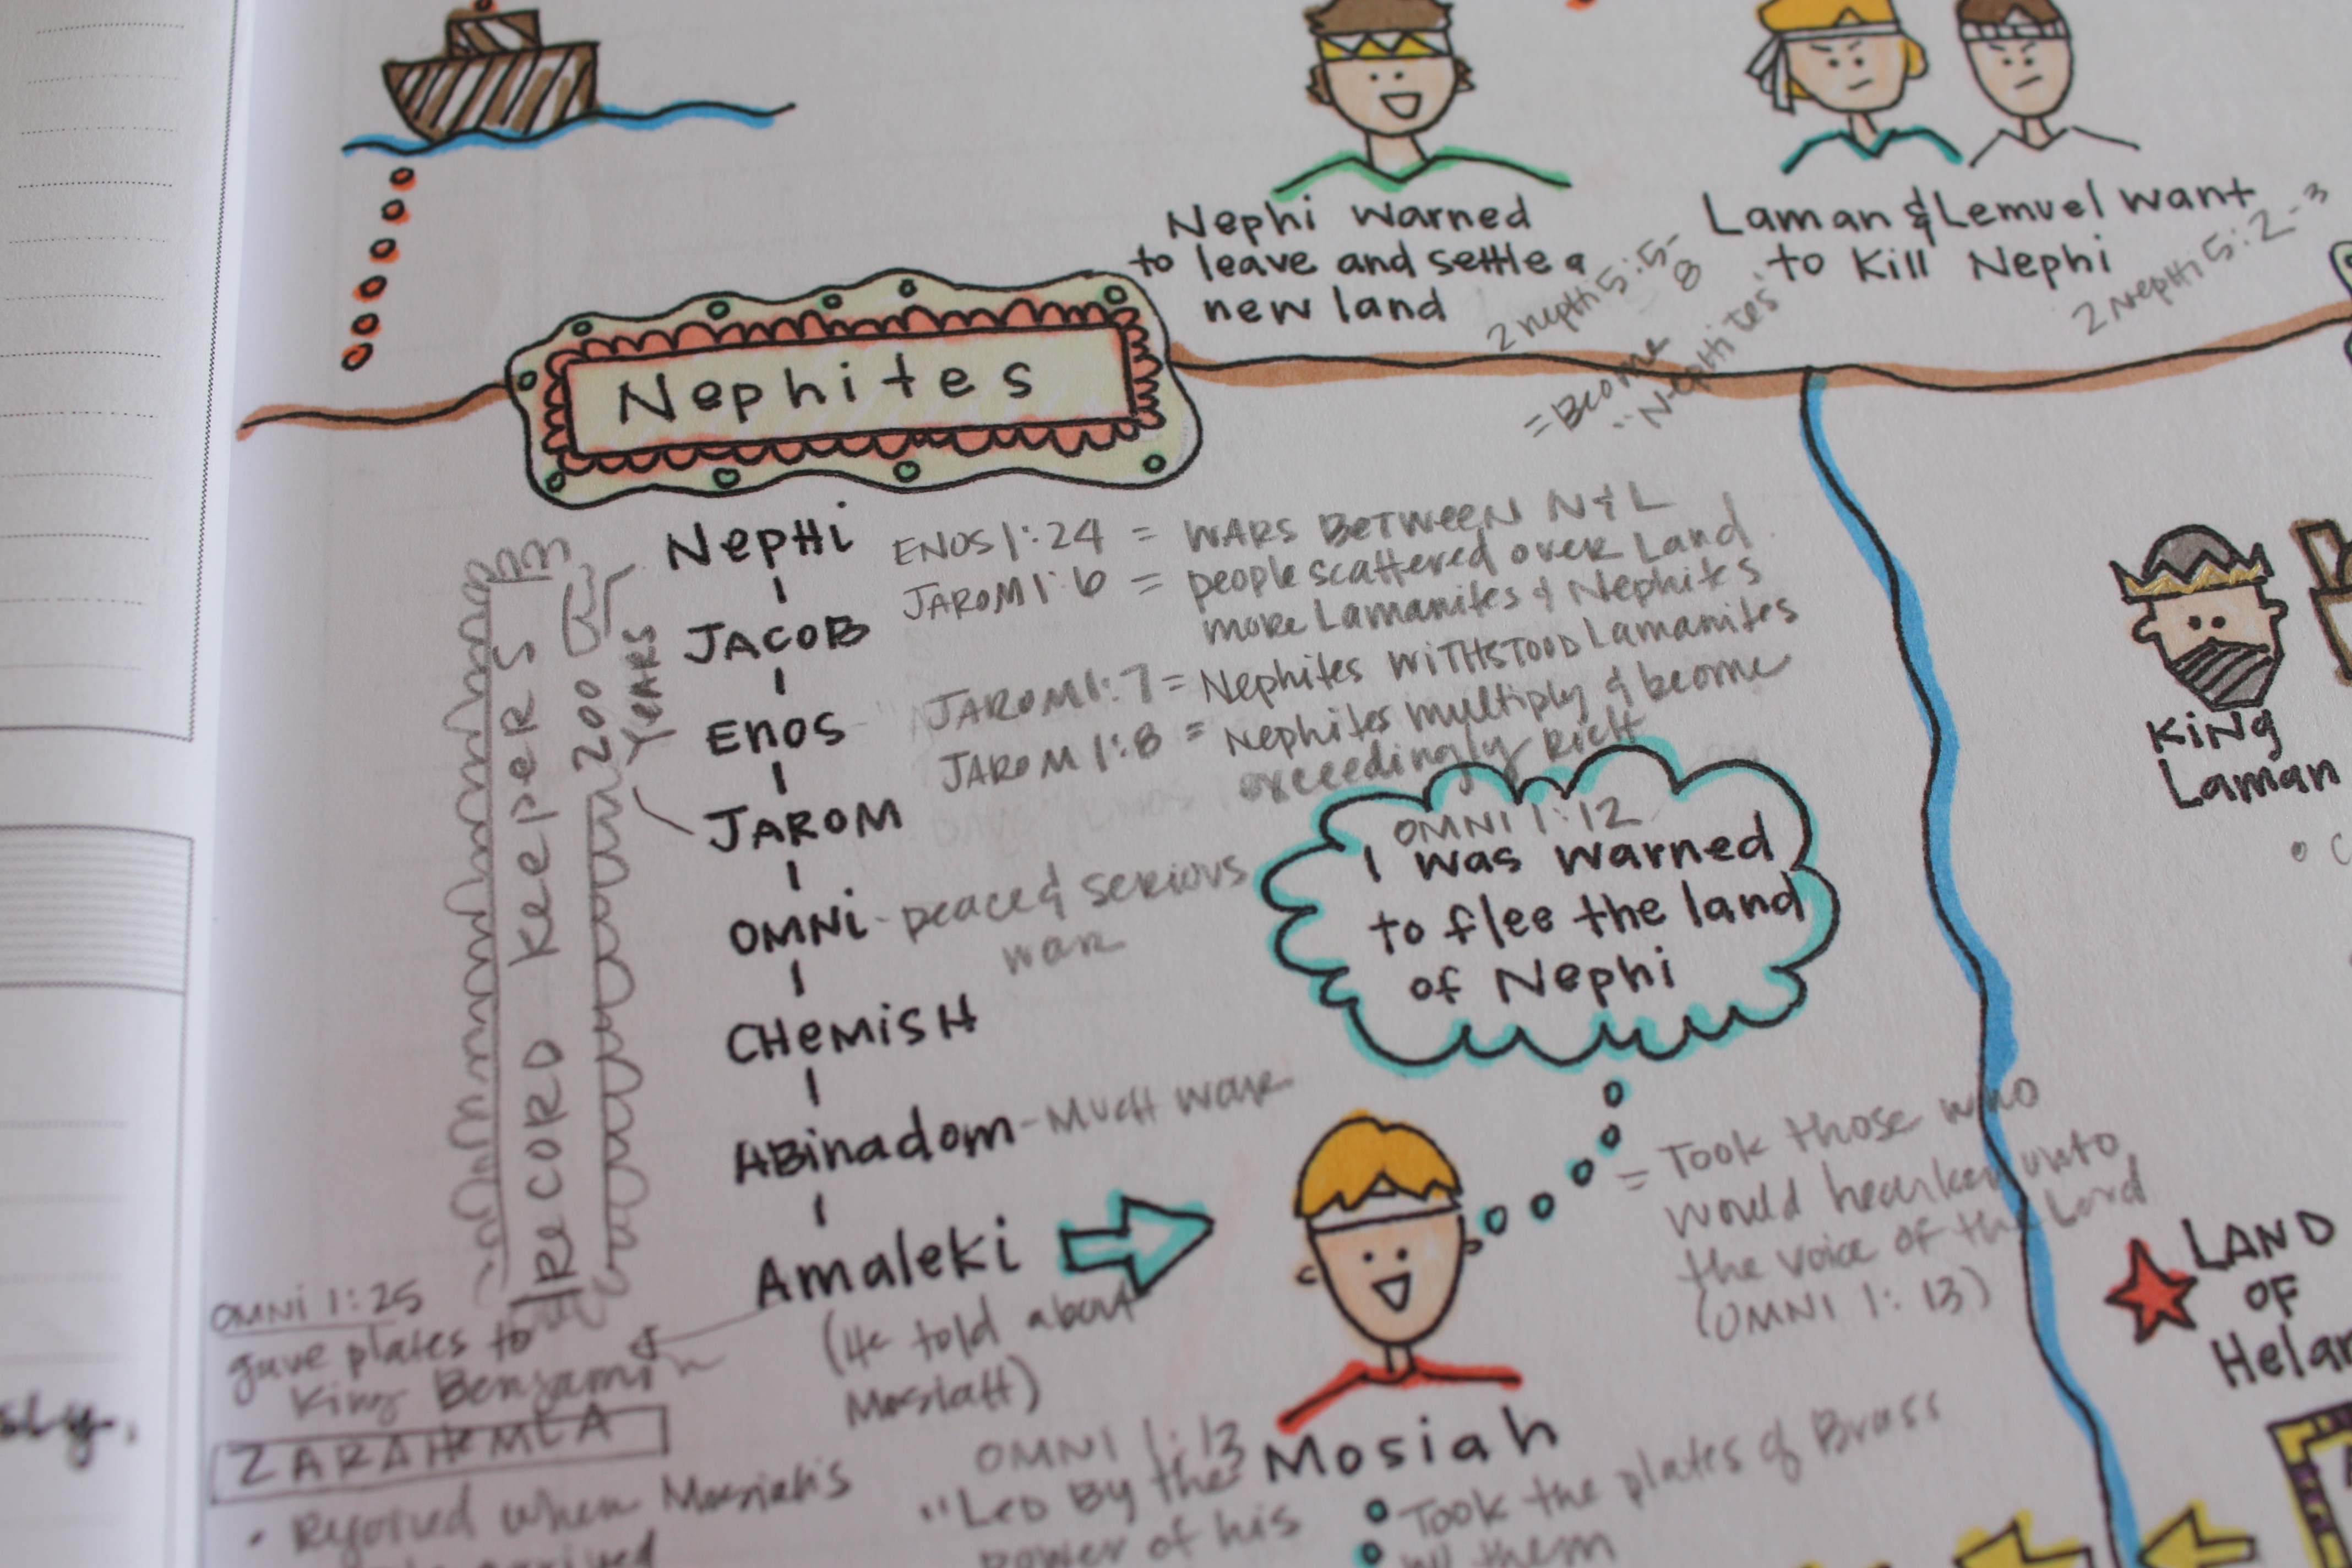 Nephi warned
to leave and settle a
new land
2 nephi 5:5-
8
= Become
"Nephites"
Laman & Lemuel want
to Kill Nephi
2 Nephi 5:2-3
Nephites
NepHi
JACOB
Enos
JAROM
OMNi - peace & serious
war
CHemisH
ABinadom - MucH war
Amaleki
(He told about
MosiaH)
RecoRD KeepeRs
200
YeaRs
ENOS 1:24 = WARS BeTWeeN N & L
JAROM 1:6 = people scattered over Land
more Lamanites & Nephites
JAROM 1:7 = Nephites WiTHSTOOD Lamanites
JAROM 1:8 = Nephites multiply & become
exceedingly RicH
OMNI 1:12
I was warned
to flee the land
of Nephi
= Took those who
would hearken unto
the voice of the Lord
(OMNI 1:13)
Mosiah
Took the plates of Brass
w/ them
OMNI 1:13
"Led By the
power of his
OMNi 1:25
gave plates to
King Benjamin
ZARAHEMLA
• Rejoiced when Mosiah's
arrived
KiNg
Laman
LAND
OF
Helam
sly.